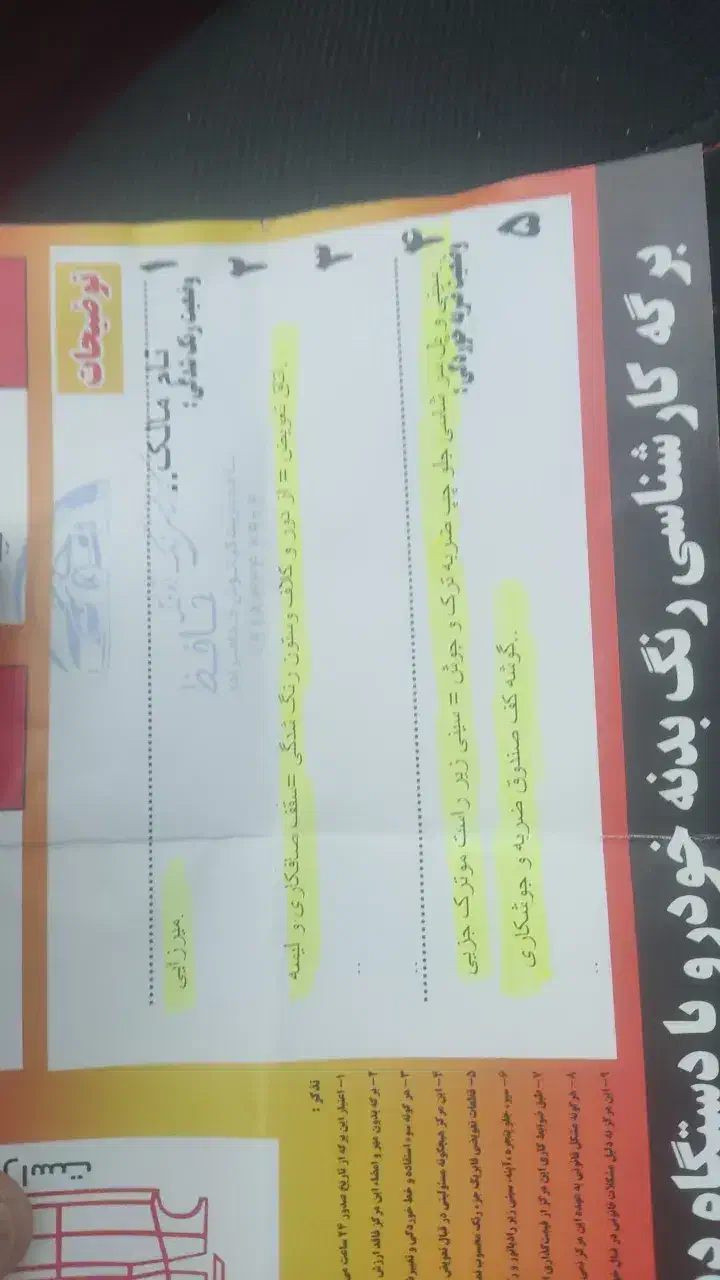 برگه کارشناسی رنگ بدنه خودرو با دستگاه
توضیحات
۱ نام مالک.. میرزایی
وضعیت رنگ شدگی :
حافظ
۲
اتاق تعویض = از دور و کلاف وستون رنگ شدگی =سقف صافکاری و لیسه
۳
..
۴
وضعیت ضربه خوردگی :
سینی و پل سر شاسی جلو چپ ضربه ترک و جوش = سینی زیر راست موترک جزیی
۵
..گوشه کف صندوق ضربه و جوشکاری
..
تذکر :
۱- اعتبار این برگه از تاریخ صدور ۲۴ ساعت می
۲- برگه بدون مهر و امضاء این مرکز فاقد ارزش
۳- هر گونه سوء استفاده و خط خوردگی و تغییر
۴- این مرکز هیچگونه مسئولیتی در قبال تعویض
۵- قطعات تعویضی فابریک جزء رنگ محسوب
۶- سپر، جلو پنجره، آینه، سینی زیر رادیاتور و
۷- طبق ضوابط کاری این مرکز از قیمت گذاری
۸- هر گونه مشکل قانونی به عهده این مرکز نمی
۹- این مرکز به دلیل مشکلات قانونی در قبال